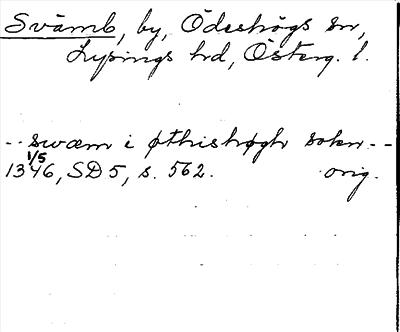 Svämb, by, Ödeshögs sn,
Lysings hd, Österg. l.
-- swæm i øthishøgh sokn --
1/5
1346, SD 5, s. 562. orig.